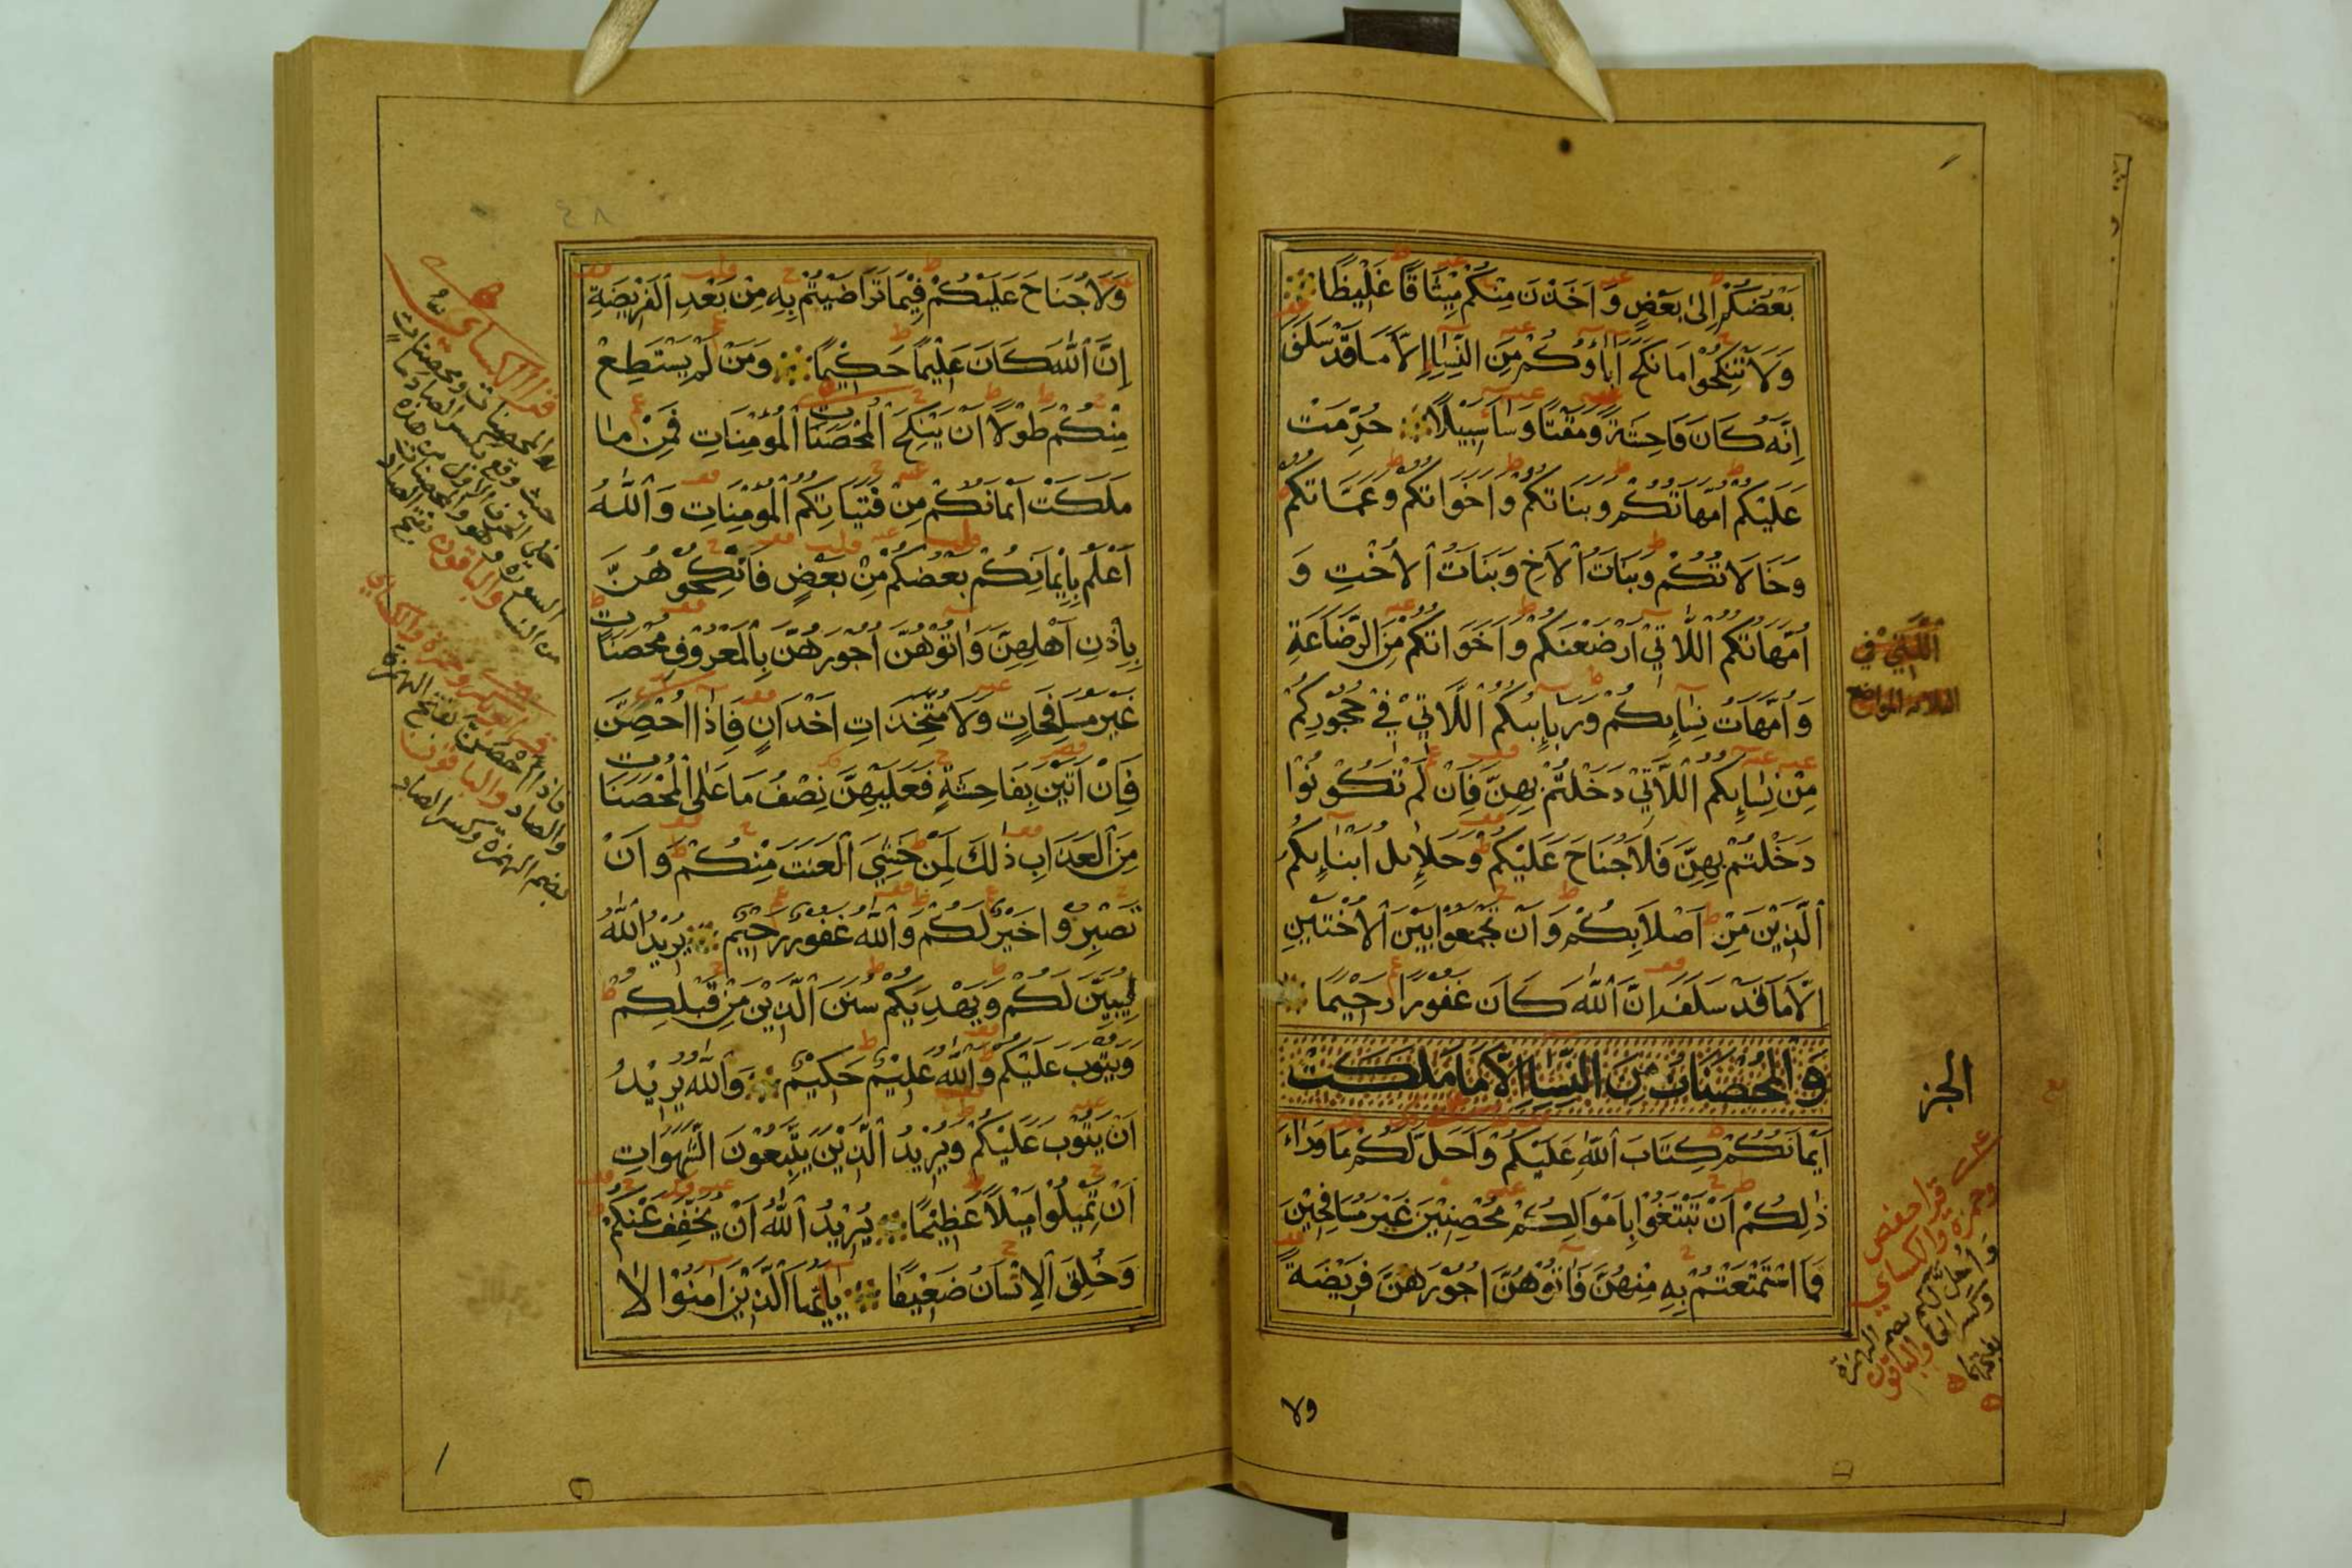 بَعْضُكُمْ اِلىٰ بَعْضٍ وَاَخَذْنَ مِنْكُمْ مِيْثَاقًا غَلِيْظًا
وَلَا تَنْكِحُوْا مَا نَكَحَ اٰبَاؤُكُمْ مِنَ النِّسَاءِ اِلَّا مَا قَدْ سَلَفَ
اِنَّهُ كَانَ فَاحِشَةً وَمَقْتًا وَسَاءَ سَبِيْلًا حُرِّمَتْ
عَلَيْكُمْ اُمَّهَاتُكُمْ وَبَنَاتُكُمْ وَاَخَوَاتُكُمْ وَعَمَّاتُكُمْ
وَخَالَاتُكُمْ وَبَنَاتُ الْاَخِ وَبَنَاتُ الْاُخْتِ وَ
اُمَّهَاتُكُمُ اللَّاتِيْ اَرْضَعْنَكُمْ وَاَخَوَاتُكُمْ مِنَ الرَّضَاعَةِ
وَاُمَّهَاتُ نِسَائِكُمْ وَرَبَائِبُكُمُ اللَّاتِيْ فِيْ حُجُوْرِكُمْ
مِنْ نِسَائِكُمُ اللَّاتِيْ دَخَلْتُمْ بِهِنَّ فَاِنْ لَمْ تَكُوْنُوْا
دَخَلْتُمْ بِهِنَّ فَلَا جُنَاحَ عَلَيْكُمْ وَحَلَائِلُ اَبْنَائِكُمُ
الَّذِيْنَ مِنْ اَصْلَابِكُمْ وَاَنْ تَجْمَعُوْا بَيْنَ الْاُخْتَيْنِ
اِلَّا مَا قَدْ سَلَفَ اِنَّ اللّٰهَ كَانَ غَفُوْرًا رَحِيْمًا
وَالْمُحْصَنَاتُ مِنَ النِّسَاءِ اِلَّا مَا مَلَكَتْ
اَيْمَانُكُمْ كِتَابَ اللّٰهِ عَلَيْكُمْ وَاَحَلَّ لَكُمْ مَا وَرَاءَ
ذٰلِكُمْ اَنْ تَبْتَغُوْا بِاَمْوَالِكُمْ مُحْصِنِيْنَ غَيْرَ مُسَافِحِيْنَ
فَمَا اسْتَمْتَعْتُمْ بِهِ مِنْهُنَّ فَاٰتُوْهُنَّ اُجُوْرَهُنَّ فَرِيْضَةً
ولا
الّٰتي في
الثلاثة المواضع
الجز
قرا حفص
وحمزة والكسائي
وَاُحِلَّ لكم بضم الهمزة
وكسر الحا والباقون
بفتحهما
٤٨
وَلَا جُنَاحَ عَلَيْكُمْ فِيْمَا تَرَاضَيْتُمْ بِهِ مِنْ بَعْدِ الْفَرِيْضَةِ
اِنَّ اللّٰهَ كَانَ عَلِيْمًا حَكِيْمًا وَمَنْ لَمْ يَسْتَطِعْ
مِنْكُمْ طَوْلًا اَنْ يَنْكِحَ الْمُحْصَنَاتِ الْمُؤْمِنَاتِ فَمِنْ مَا
مَلَكَتْ اَيْمَانُكُمْ مِنْ فَتَيَاتِكُمُ الْمُؤْمِنَاتِ وَاللّٰهُ
اَعْلَمُ بِاِيْمَانِكُمْ بَعْضُكُمْ مِنْ بَعْضٍ فَانْكِحُوْهُنَّ
بِاِذْنِ اَهْلِهِنَّ وَاٰتُوْهُنَّ اُجُوْرَهُنَّ بِالْمَعْرُوْفِ مُحْصَنَاتٍ
غَيْرَ مُسَافِحَاتٍ وَلَا مُتَّخِذَاتِ اَخْدَانٍ فَاِذَا اُحْصِنَّ
فَاِنْ اَتَيْنَ بِفَاحِشَةٍ فَعَلَيْهِنَّ نِصْفُ مَا عَلَى الْمُحْصَنَاتِ
مِنَ الْعَذَابِ ذٰلِكَ لِمَنْ خَشِيَ الْعَنَتَ مِنْكُمْ وَاَنْ
تَصْبِرُوْا خَيْرٌ لَكُمْ وَاللّٰهُ غَفُوْرٌ رَحِيْمٌ يُرِيْدُ اللّٰهُ
لِيُبَيِّنَ لَكُمْ وَيَهْدِيَكُمْ سُنَنَ الَّذِيْنَ مِنْ قَبْلِكُمْ
وَيَتُوْبَ عَلَيْكُمْ وَاللّٰهُ عَلِيْمٌ حَكِيْمٌ وَاللّٰهُ يُرِيْدُ
اَنْ يَتُوْبَ عَلَيْكُمْ وَيُرِيْدُ الَّذِيْنَ يَتَّبِعُوْنَ الشَّهَوَاتِ
اَنْ تَمِيْلُوْا مَيْلًا عَظِيْمًا يُرِيْدُ اللّٰهُ اَنْ يُخَفِّفَ عَنْكُمْ
وَخُلِقَ الْاِنْسَانُ ضَعِيْفًا يَا اَيُّهَا الَّذِيْنَ اٰمَنُوْا لَا
قرا الكسائي
والمحصنات ومحصنات
حيث وقع بكسر الصاد ما
خلا الحرف الاول من هذه
السورة وهو والمحصنات
من النسا والباقون بفتح الصاد
قرا ابو بكر وحمزة والكسائي
فاذا اَحصن بفتح الهمزة
والصاد والباقون
بضم الهمزة وكسر الصاد